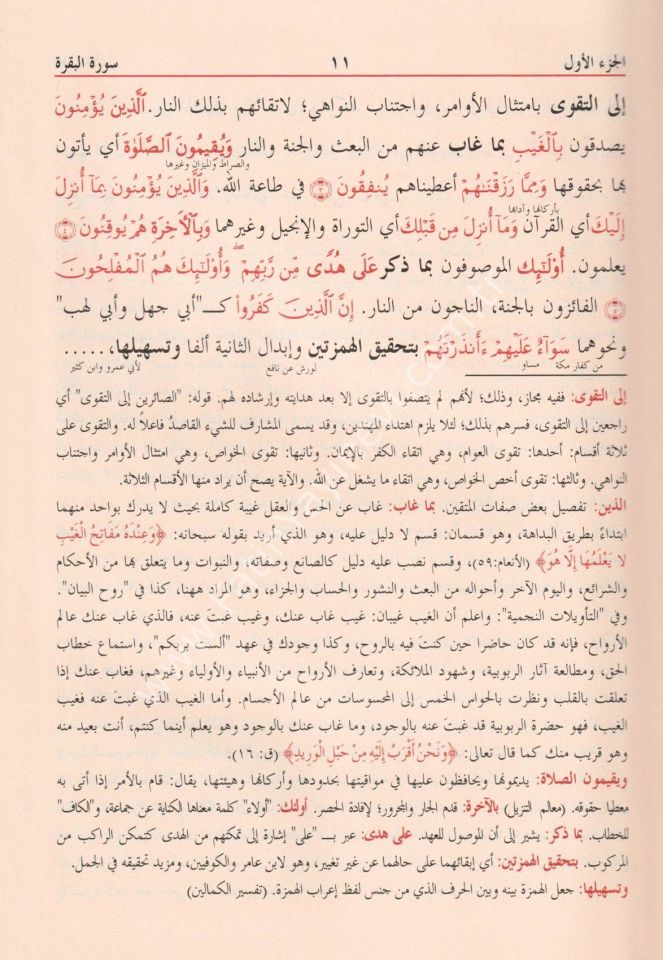 الجزء الأول ١١ سورة البقرة
إلى التقوى بامتثال الأوامر، واجتناب النواهي؛ لاتقائهم بذلك النار. ٱلَّذِينَ يُؤْمِنُونَ
يصدقون بِٱلْغَيْبِ بما غاب عنهم من البعث والجنة والنار وَيُقِيمُونَ ٱلصَّلَوٰةَ أي يأتون
والصراط والميزان وغيرها
بها بحقوقها وَمِمَّا رَزَقْنَـٰهُمْ أعطيناهم يُنفِقُونَ ۝٣ في طاعة الله. وَٱلَّذِينَ يُؤْمِنُونَ بِمَآ أُنزِلَ
بأركانها وآدابها
إِلَيْكَ أي القرآن وَمَآ أُنزِلَ مِن قَبْلِكَ أي التوراة والإنجيل وغيرهما وَبِٱلْـَٔاخِرَةِ هُمْ يُوقِنُونَ ۝٤
يعلمون. أُوْلَـٰٓئِكَ الموصوفون بما ذكر عَلَىٰ هُدًى مِّن رَّبِّهِمْ ۖ وَأُوْلَـٰٓئِكَ هُمُ ٱلْمُفْلِحُونَ
۝٥ الفائزون بالجنة، الناجون من النار. إِنَّ ٱلَّذِينَ كَفَرُواْ كــ"أبي جهل وأبي لهب"
ونحوهما سَوَآءٌ عَلَيْهِمْ ءَأَنذَرْتَهُمْ بتحقيق الهمزتين وإبدال الثانية ألفا وتسهيلها، .....
من كفار مكة مساو لورش عن نافع لأبي عمرو وابن كثير
إلى التقوى: ففيه مجاز، وذلك؛ لأنهم لم يتصفوا بالتقوى إلا بعد هدايته وإرشاده لهم. قوله: "الصائرين إلى التقوى" أي
راجعين إلى التقوى، فسرهم بذلك؛ لئلا يلزم اهتداء المهتدين، وقد يسمى المشارف للشيء القاصدُ فاعلًا له. والتقوى على
ثلاثة أقسام: أحدها: تقوى العوام، وهي اتقاء الكفر بالإيمان. وثانيها: تقوى الخواص، وهي امتثال الأوامر واجتناب
النواهي. وثالثها: تقوى أخص الخواص، وهي اتقاء ما يشغل عن الله. والآية يصح أن يراد منها الأقسام الثلاثة.
الذين: تفصيل بعض صفات المتقين. بما غاب: غاب عن الحس والعقل غيبة كاملة بحيث لا يدرك بواحد منهما
ابتداءً بطريق البداهة، وهو قسمان: قسم لا دليل عليه، وهو الذي أريد بقوله سبحانه: ﴿وَعِنْدَهُ مَفَاتِحُ الْغَيْبِ
لا يَعْلَمُهَا إِلَّا هُوَ﴾ (الأنعام:٥٩)، وقسم نصب عليه دليل كالصانع وصفاته، والنبوات وما يتعلق بها من الأحكام
والشرائع، واليوم الآخر وأحواله من البعث والنشور والحساب والجزاء، وهو المراد ههنا، كذا في "روح البيان".
وفي "التأويلات النجمية": واعلم أن الغيب غيبان: غيب غاب عنك، وغيب غبتَ عنه، فالذي غاب عنك عالم
الأرواح، فإنه قد كان حاضرا حين كنتَ فيه بالروح، وكذا وجودك في عهد "ألست بربكم"، واستماع خطاب
الحق، ومطالعة آثار الربوبية، وشهود الملائكة، وتعارف الأرواح من الأنبياء والأولياء وغيرهم، فغاب عنك إذا
تعلقت بالقلب ونظرت بالحواس الخمس إلى المحسوسات من عالم الأجسام. وأما الغيب الذي غبتَ عنه فغيب
الغيب، فهو حضرة الربوبية قد غبتَ عنه بالوجود، وما غاب عنك بالوجود وهو يعلم أينما كنتم، أنت بعيد منه
وهو قريب منك كما قال تعالى: ﴿وَنَحْنُ أَقْرَبُ إِلَيْهِ مِنْ حَبْلِ الْوَرِيدِ﴾ (ق: ١٦).
ويقيمون الصلاة: يديمونها ويحافظون عليها في مواقيتها بحدودها وأركانها وهيئتها، يقال: قام بالأمر إذا أتى به
معطيا حقوقه. (معالم التنزيل) بالآخرة: قدم الجار والمجرور؛ لإفادة الحصر. أولئك: "أولاء" كلمة معناها الكناية عن جماعة، و"الكاف"
للخطاب. بما ذكر: يشير إلى أن الموصول للعهد. على هدى: عبر بــ "على" إشارة إلى تمكنهم من الهدى كتمكن الراكب من
المركوب. بتحقيق الهمزتين: أي إبقائهما على حالهما عن غير تغيير، وهو لابن عامر والكوفيين، ومزيد تحقيقه في الجمل.
وتسهيلها: جعل الهمزة بينه وبين الحرف الذي من جنس لفظ إعراب الهمزة. (تفسير الكمالين)